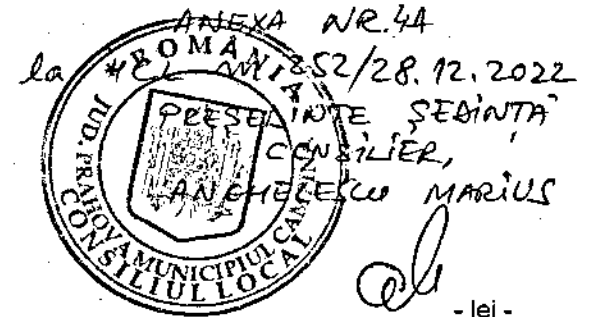 ANEXA NR. 4A
la HCL nr 252/28.12.2022
PREȘEDINTE ȘEDINȚĂ
CONSILIER,
ANGHELESCU MARIUS
ROMÂNIA
JUD. PRAHOVA MUNICIPIUL CAMPINA
CONSILIUL LOCAL
- lei -